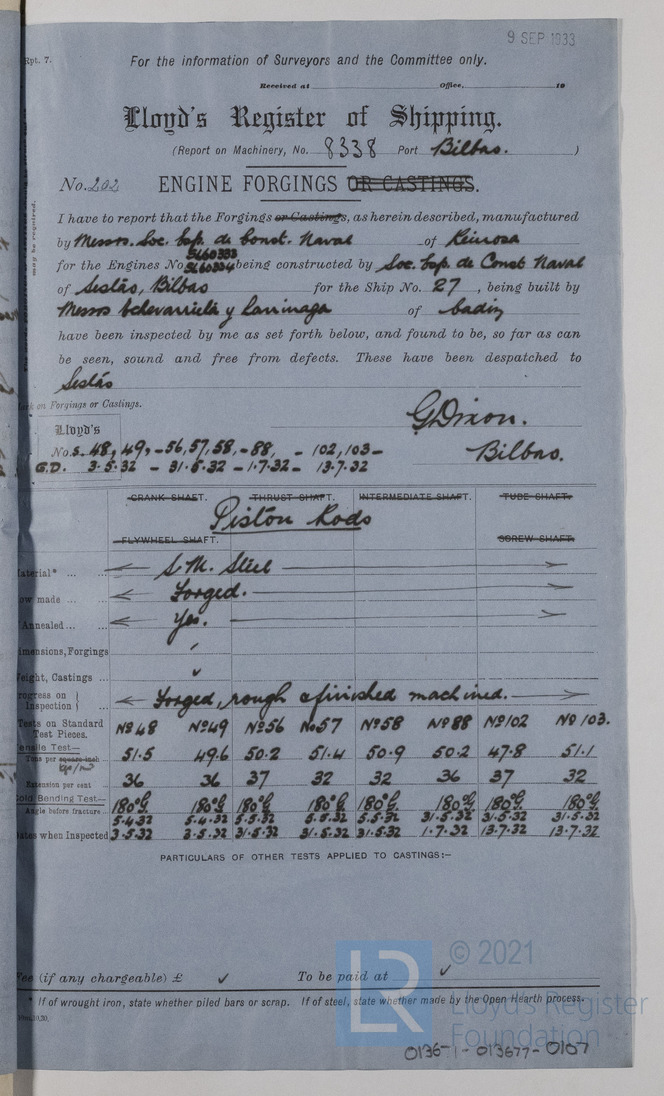 9 SEP 1933
Rpt. 7.
For the information of Surveyors and the Committee only.
Received at Office, 19
Lloyd's Register of Shipping.
(Report on Machinery, No. 8338 Port Bilbao. )
No. 202 ENGINE FORGINGS OR CASTINGS.
may be required.
I have to report that the Forgings or Castings, as herein described, manufactured
by Messrs. Soc. Esp. de Const. Naval of Reinosa
5160333
for the Engines No 5160334 being constructed by Soc. Esp. de Const Naval
of Sestao, Bilbao for the Ship No. 27, being built by
Messrs Echevarrieta y Larrinaga of Cadiz
have been inspected by me as set forth below, and found to be, so far as can
be seen, sound and free from defects. These have been despatched to
Sestao
on Forgings or Castings.
G Dixon.
Lloyd's
Bilbao.
Nos. 48, 49, - 56, 57, 58, - 88, - 102, 103 -
G.D. 3.5.32 - 31.5.32 - 1.7.32 - 13.7.32
CRANK SHAFT. THRUST SHAFT. INTERMEDIATE SHAFT. TUBE SHAFT.
Piston Rods
FLYWHEEL SHAFT. SCREW SHAFT.
Material* ... ... S.M. Steel
How made ... ... Forged.
Annealed ... ... Yes.
Dimensions, Forgings
Weight, Castings ...
Progress on Inspection } ... Forged, rough & finished machined.
Tests on Standard Test Pieces. No 48 No 49 No 56 No 57 No 58 No 88 No 102 No 103.
Tensile Test—
Tons per square inch 51.5 49.6 50.2 51.4 50.9 50.2 47.8 51.1
Extension per cent 36 36 37 32 32 36 37 32
Cold Bending Test—
Angle before fracture 180°G 180°G 180°G 180°G 180°G 180°G 180°G 180°G
5.4.32 5.4.32 5.5.32 5.5.32 5.5.32 31.5.32 31.5.32 31.5.32
Dates when Inspected 3.5.32 3.5.32 31.5.32 31.5.32 31.5.32 1.7.32 13.7.32 13.7.32
PARTICULARS OF OTHER TESTS APPLIED TO CASTINGS:—
Fee (if any chargeable) £ To be paid at
* If of wrought iron, state whether piled bars or scrap. If of steel, state whether made by the Open Hearth process.
LR
© 2021
Lloyd's Register
Foundation
013671-013677-0107